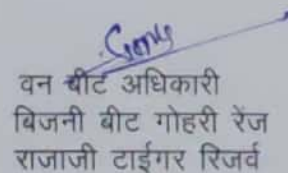 वन बीट अधिकारी
बिजनी बीट गोहरी रेंज
राजाजी टाईगर रिजर्व